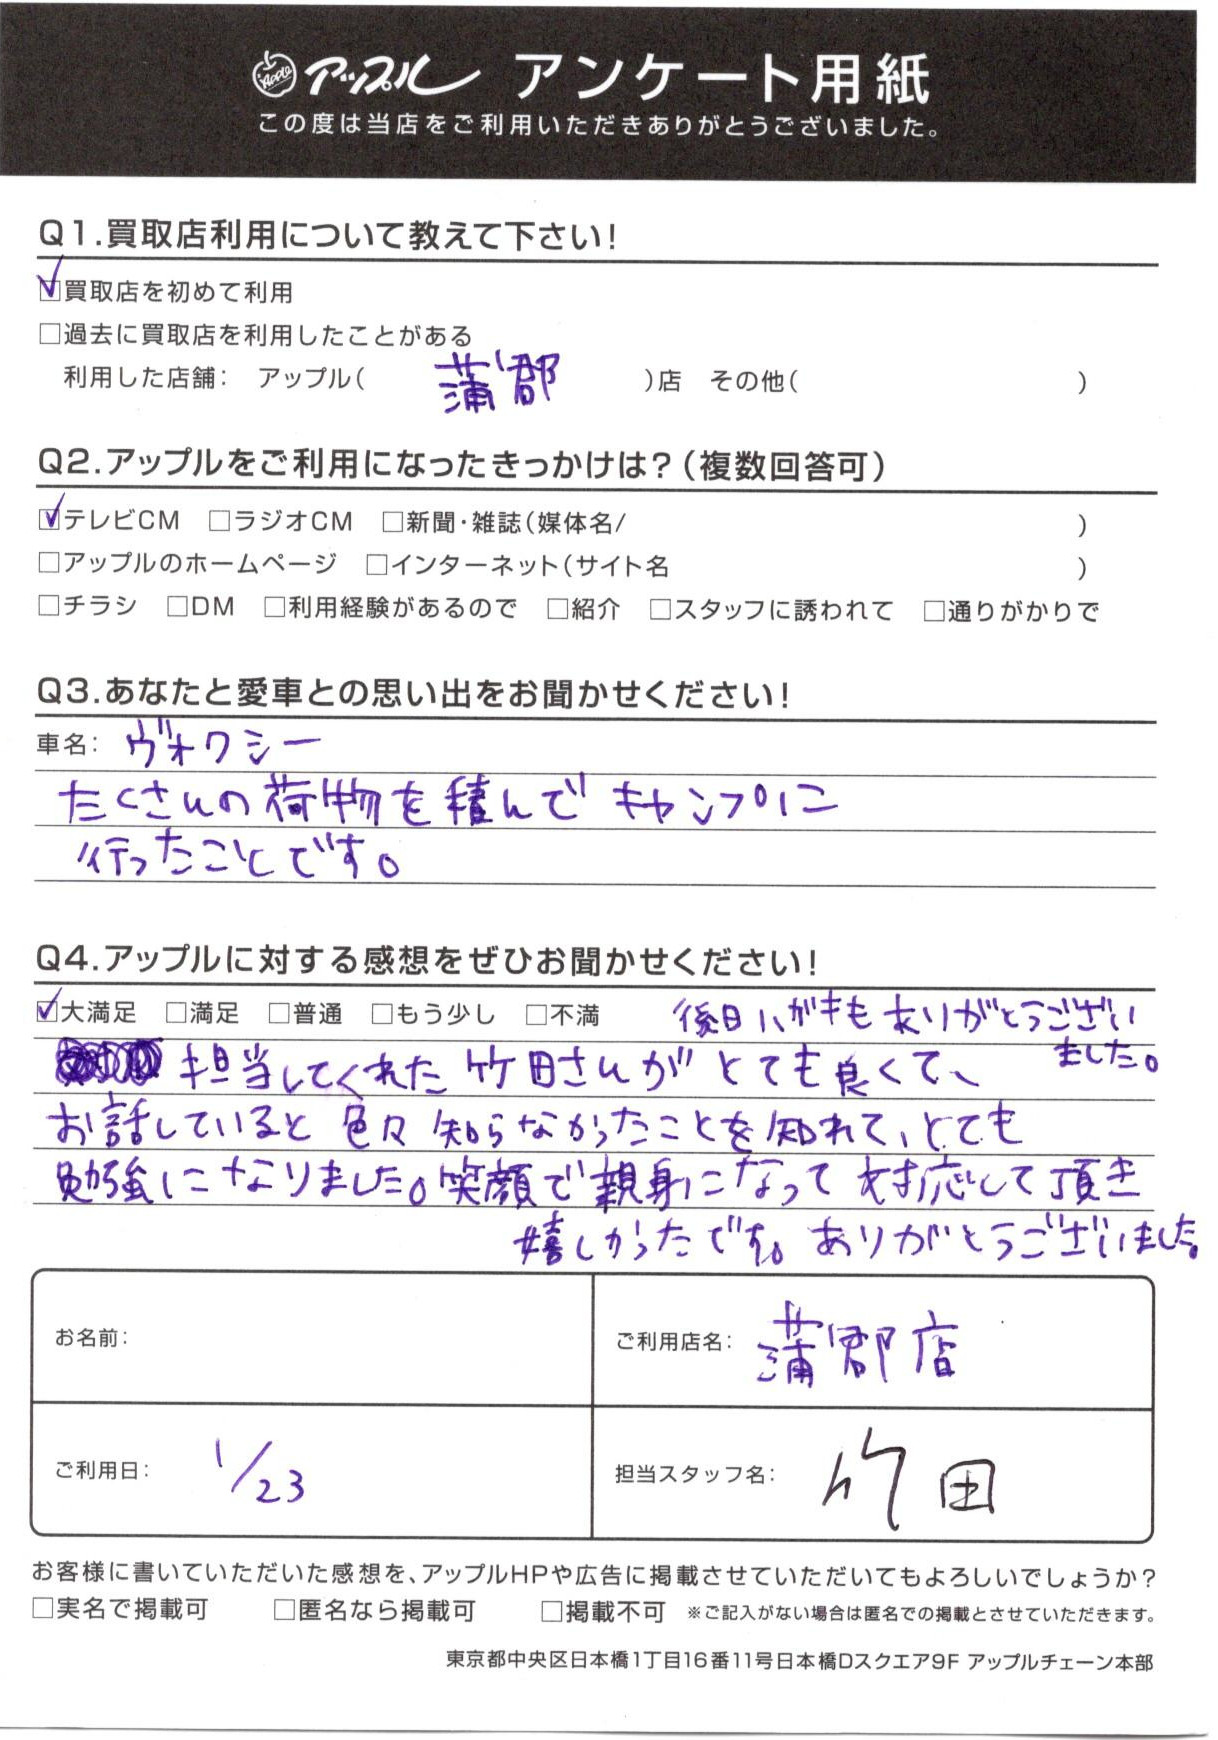 Apple アップル アンケート用紙
この度は当店をご利用いただきありがとうございました。
Q1.買取店利用について教えて下さい!
☑買取店を初めて利用
□過去に買取店を利用したことがある
利用した店舗: アップル( 蒲郡 )店 その他( )
Q2.アップルをご利用になったきっかけは?(複数回答可)
☑テレビCM □ラジオCM □新聞・雑誌(媒体名/ )
□アップルのホームページ □インターネット(サイト名 )
□チラシ □DM □利用経験があるので □紹介 □スタッフに誘われて □通りがかりで
Q3.あなたと愛車との思い出をお聞かせください!
車名: ヴォクシー
たくさんの荷物を積んでキャンプに
行ったことです。
Q4.アップルに対する感想をぜひお聞かせください!
☑大満足 □満足 □普通 □もう少し □不満 後日ハガキもありがとうござい
ました。
担当してくれた竹田さんがとても良くて、
お話していると色々知らなかったことを知れて、とても
勉強になりました。笑顔で親身になって対応して頂き
嬉しかったです。ありがとうございました。
お名前:
ご利用店名: 蒲郡店
ご利用日: 1/23
担当スタッフ名: 竹田
お客様に書いていただいた感想を、アップルHPや広告に掲載させていただいてもよろしいでしょうか?
□実名で掲載可 □匿名なら掲載可 □掲載不可 ※ご記入がない場合は匿名での掲載とさせていただきます。
東京都中央区日本橋1丁目16番11号日本橋Dスクエア9F アップルチェーン本部